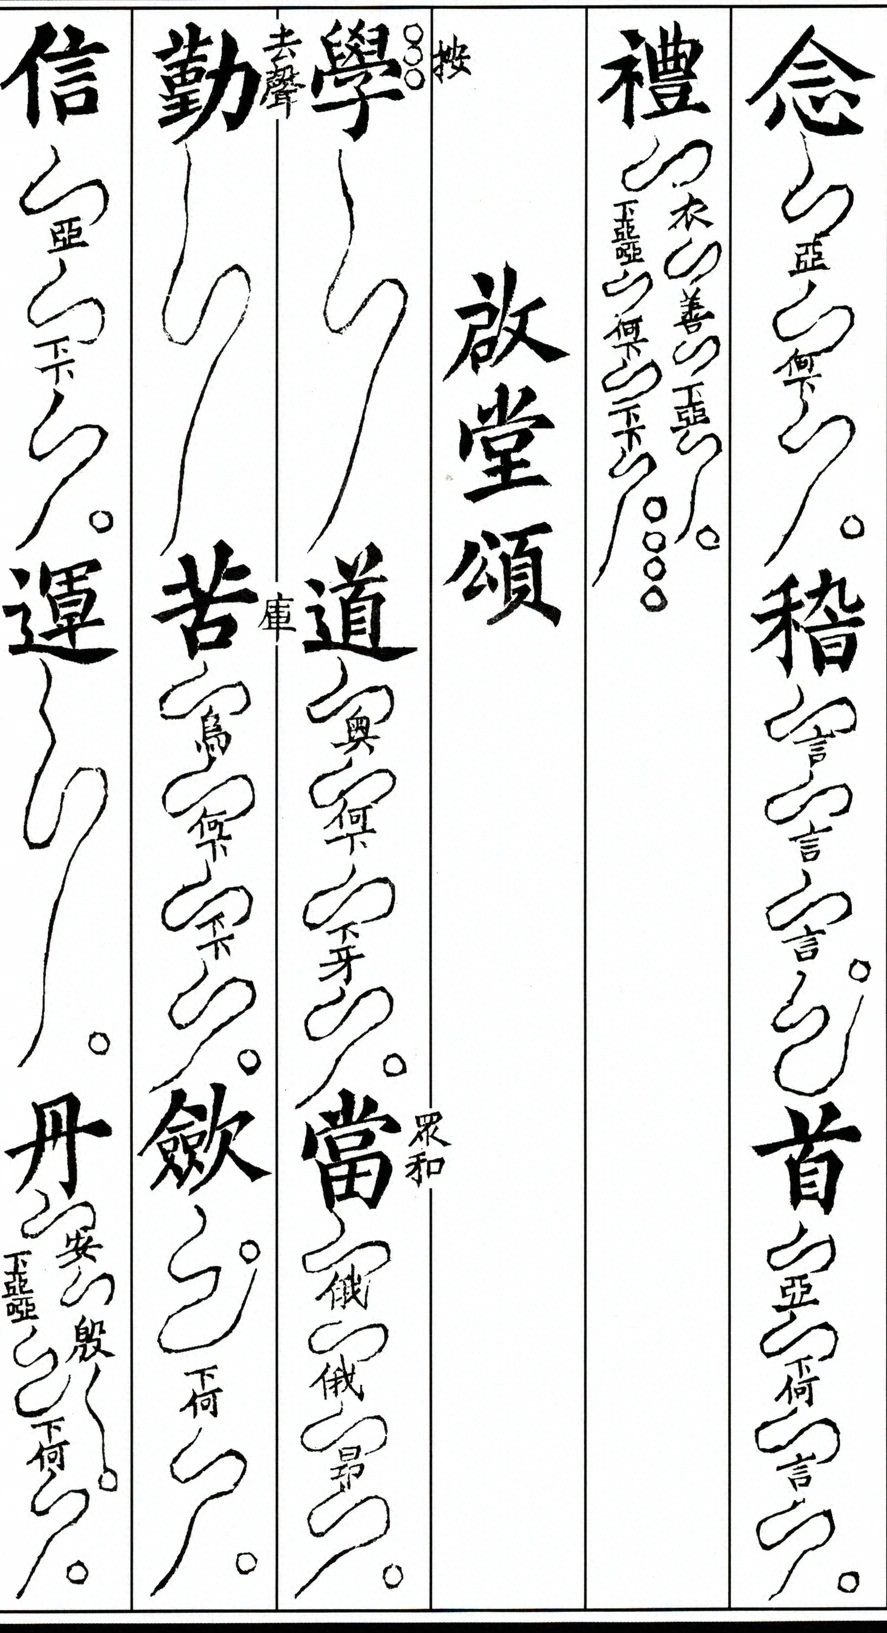 念亞何下稽言言言首亞下何言
禮衣善下亞下亞啞何下下下
啟堂頌
按學道奧何下下牙當眾和俄俄昂
勤去聲苦庫烏何下下下歛下何
信亞下下運丹安殷下亞啞下何